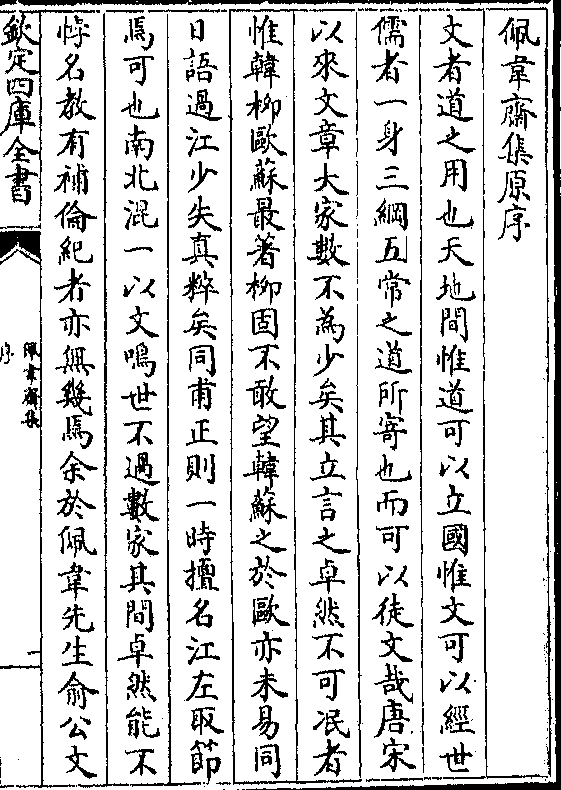 佩韋齋集原序
文者道之用也天地間惟道可以立國惟文可以經世
儒者一身三綱五常之道所寄也而可以徒文哉唐宋
以來文章大家數不為少矣其立言之卓然不可冺者
惟韓栁歐蘇最著栁固不敢望韓蘇之於歐亦未易同
日語過江少失真粹矣同甫正則一時擅名江左取節
焉可也南北混一以文鳴世不過數家其間卓然能不
悖名教有補倫紀者亦無幾焉余於佩韋先生俞公文
欽定四庫全書
佩韋齋集
序
一